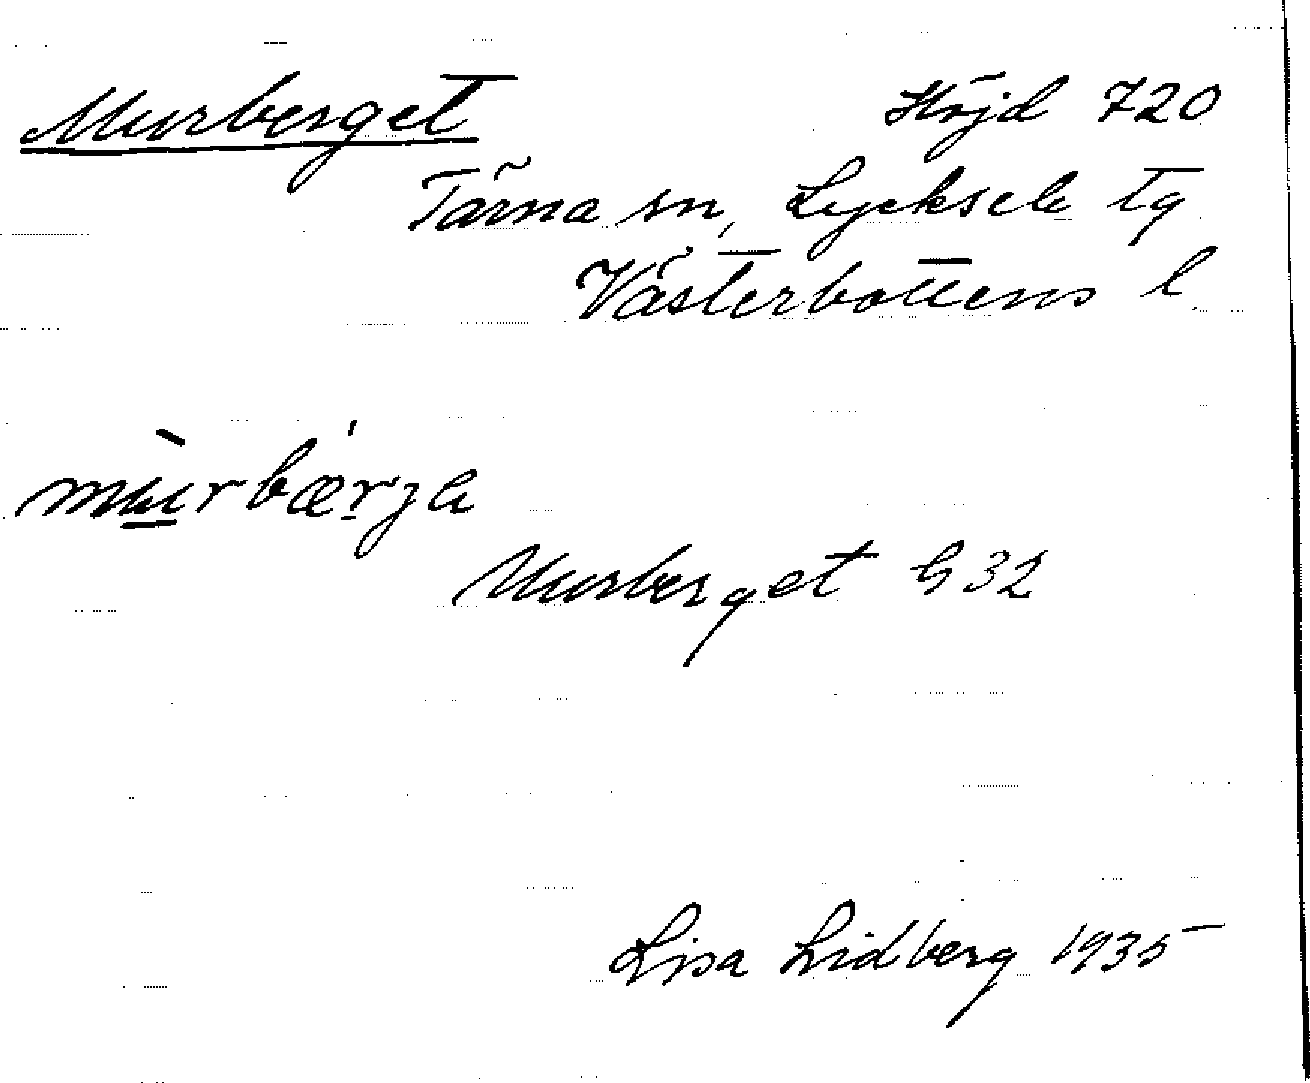 Murberget Höjd 720
Tärna sn, Lycksele tg
Västerbottens l
mùrbær̠ja
Murberget G 32
Lisa Lidberg 1935